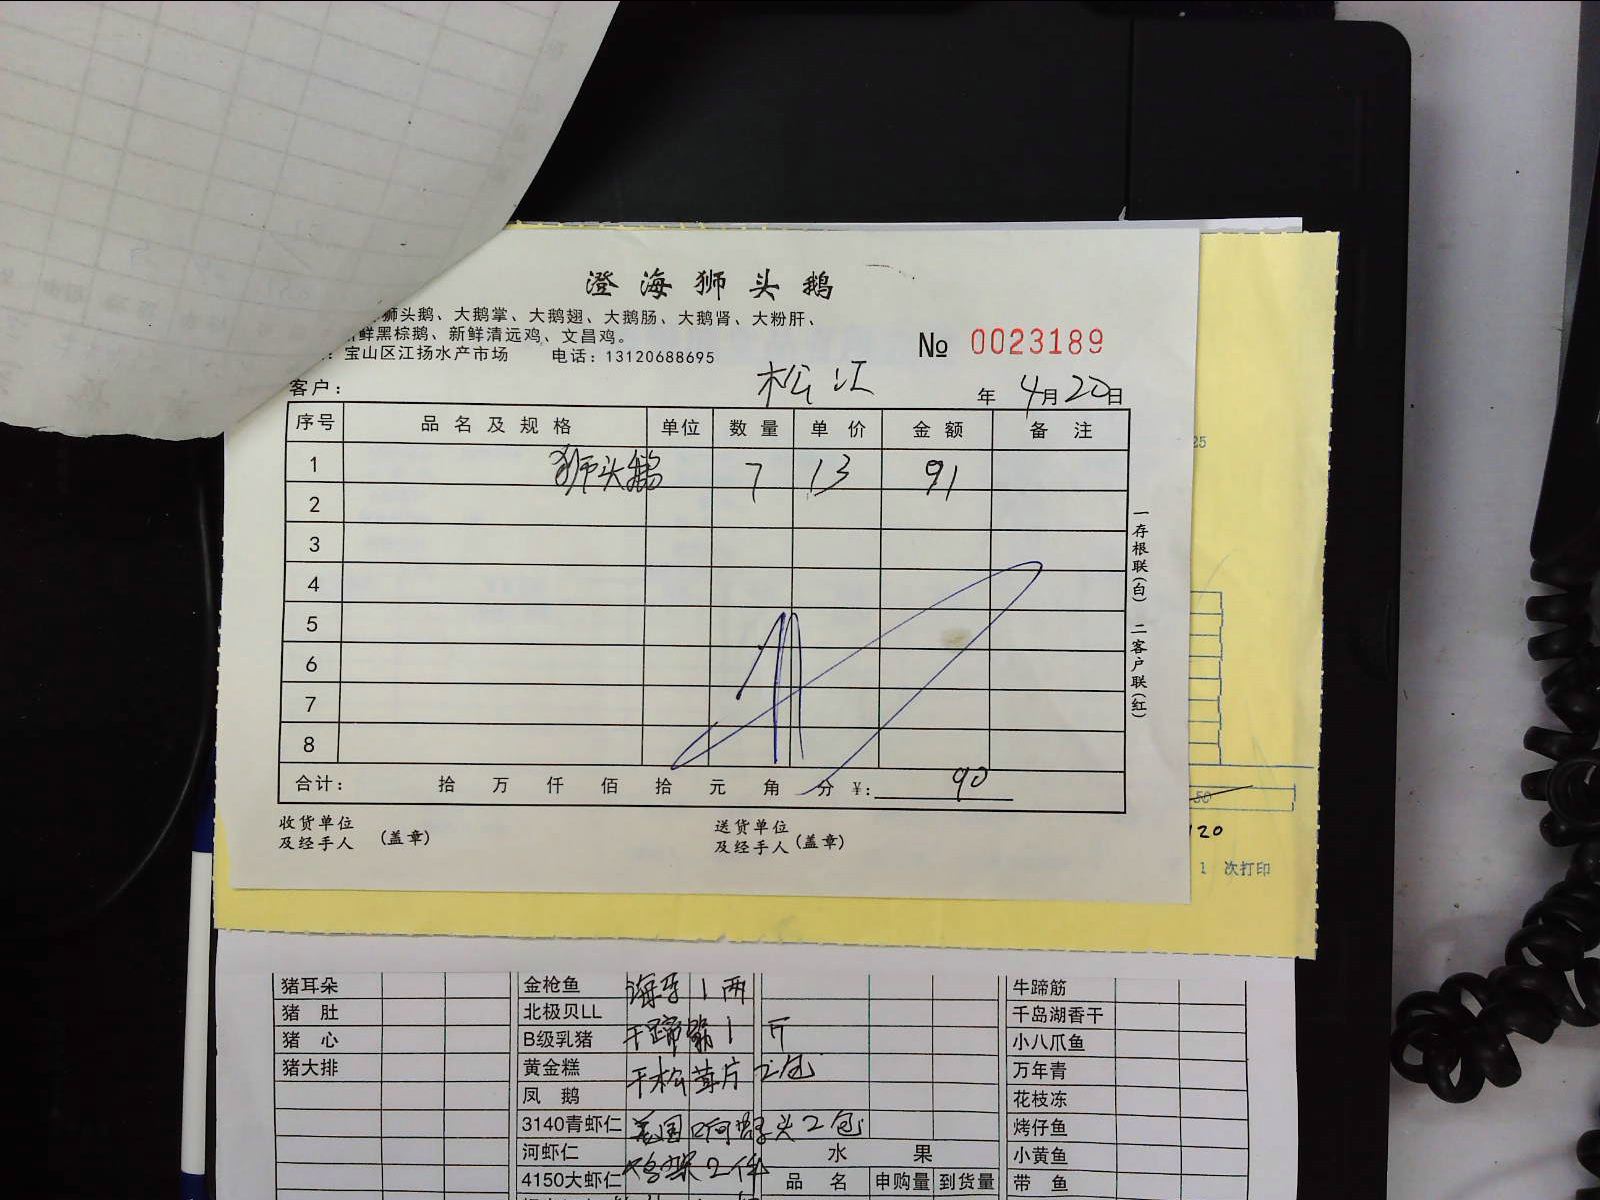 澄海狮头鹅
狮头鹅、大鹅掌、大鹅翅、大鹅肠、大鹅肾、大粉肝、
鲜黑棕鹅、新鲜清远鸡、文昌鸡。
：宝山区江扬水产市场 电话：13120688695
№ 0023189
客户： 松江 年 4月20日
序号 品名及规格 单位 数量 单价 金额 备注
1 狮头鹅 7 13 91
2
3
4
5
6
7
8
合计： 拾 万 仟 佰 拾 元 角 分 ¥: 90
收货单位
及经手人 (盖章)
送货单位
及经手人 (盖章)
一存根联(白) 二客户联(红)
25
50
120
1 次打印
猪耳朵 金枪鱼 1两 牛蹄筋
猪肚 北极贝LL 千岛湖香干
猪心 B级乳猪 干蹄筋1斤 小八爪鱼
猪大排 黄金糕 干松茸片2包 万年青
凤鹅 花枝冻
3140青虾仁 美国 头2包 烤仔鱼
河虾仁 水果 小黄鱼
4150大虾仁 鸡架2件 品名 申购量 到货量 带鱼